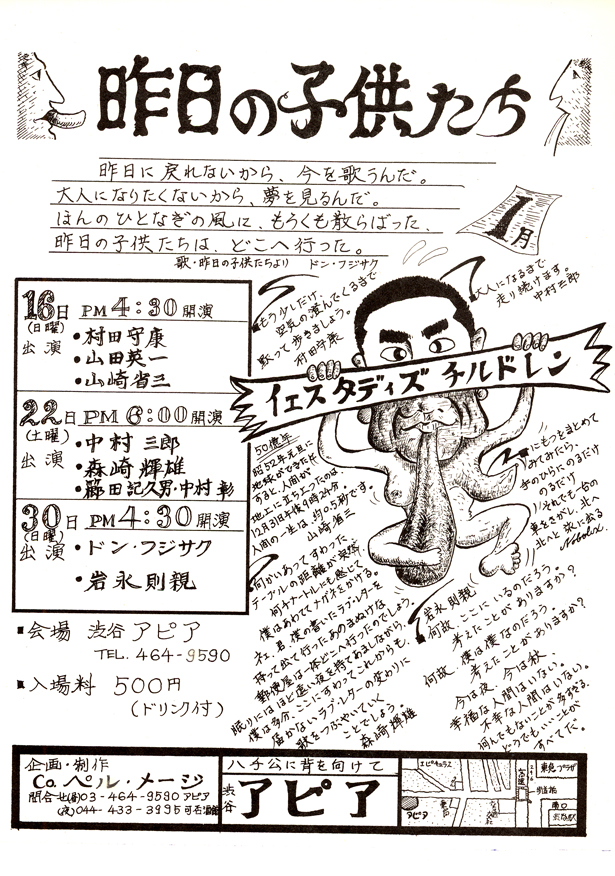 昨日の子供たち
昨日に戻れないから、今を歌うんだ。
大人になりたくないから、夢を見るんだ。
ほんのひとなぎの風に、もうくも散らばった、
昨日の子供たちは、どこへ行った。
歌・昨日の子供たちより ドン・フジサク
1月
16日 PM4:30開演
(日曜)
出演
・村田守康
・山田英一
・山崎省三
22日 PM6:00開演
(土曜)
出演
・中村三郎
・森崎輝雄
・藤田記久男・中村 彰
30日 PM4:30開演
(日曜)
出演
・ドン・フジサク
・岩永則親
■会場 渋谷 アピア
TEL. 464-9590
■入場料 500円
(ドリンク付)
もう少しだけ、
空気の澄んでくるまで
黙って歩きましょう。
村田守康
大人になるまで
走り続けます。
中村三郎
イェスタディズ チルドレン
50億年
昭52年元旦に
地球ができたと
すると、人間が
地上に立ったのは
12月31日午後11時24分。
人間の一生は、約0.5秒です。
山崎省三
にもつをまとめて
みてみたら、
手のひらへのるだけ
のるだけ
いれても一台の
車をさがし、北へ
北へと旅に出る
何かいあってすわった
テーブルの距離が突然
何千メートルにも感じて
僕はあわててメガネをかける。
ネェ、君、僕の書いたラブ・レターを
持って出て行ったあのまぬけな
郵便屋は一体どこへ行ったのでしょう。
眠りにはほど遠い夜を持てあましながら、
僕は多分、ここにすわってこれからも、
届かないラブ・レターの変わりに
歌をつぶやいていく
ことでしょう。
森崎輝雄
岩永則親
何故、ここにいるのだろう。
考えたことがありますか?
何故、僕は僕なのだろう。
考えたことがありますか?
今は夜、今は秋、
幸福な人間はいない。
不幸な人間はいない。
何んでもないことが多すぎる、
どうでもいいことが
すべてだ。
企画・制作
Co. ペル・メージ
問合せ(昼)03-464-9590 アピア
(夜)044-433-3995
ハチ公に背を向けて
渋谷 アピア
エピキュラス
東急プラザ
歩道橋
南口
渋谷駅
アピア